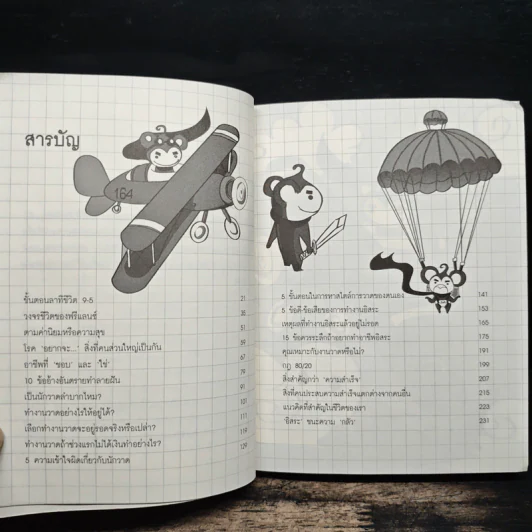 สารบัญ
164
ขั้นตอนลาทีชีวิต 9-5
21
วงจรชีวิตของฟรีแลนซ์
35
ตามค่านิยมหรือความสุข
51
โรค 'อยากจะ...' สิ่งที่คนส่วนใหญ่เป็นกัน
59
อาชีพที่ 'ชอบ' และ 'ใช่'
10 ข้ออ้างอันตรายทำลายฝัน
เป็นนักวาดลำบากไหม?
ทำงานวาดอย่างไรให้อยู่ได้?
111
เลือกทำงานวาดจะอยู่รอดจริงหรือเปล่า?
119
ทำงานวาดถ้าช่วงแรกไม่ได้เงินทำอย่างไร?
129
5 ความเข้าใจผิดเกี่ยวกับนักวาด
5 ขั้นตอนในการหาสไตล์การวาดของตนเอง
141
5 ข้อดี-ข้อเสียของการทำงานอิสระ
153
เหตุผลที่ทำงานอิสระแล้วอยู่ไม่รอด
165
15 ข้อควรระลึกถ้าอยากทำอาชีพอิสระ
175
คุณเหมาะกับงานวาดหรือไม่?
191
กฎ 80/20
199
สิ่งสำคัญกว่า 'ความสำเร็จ'
207
สิ่งที่คนประสบความสำเร็จแตกต่างจากคนอื่น
215
แนวคิดที่สำคัญในชีวิตของเรา
223
'อิสระ' ชนะความ 'กลัว'
231